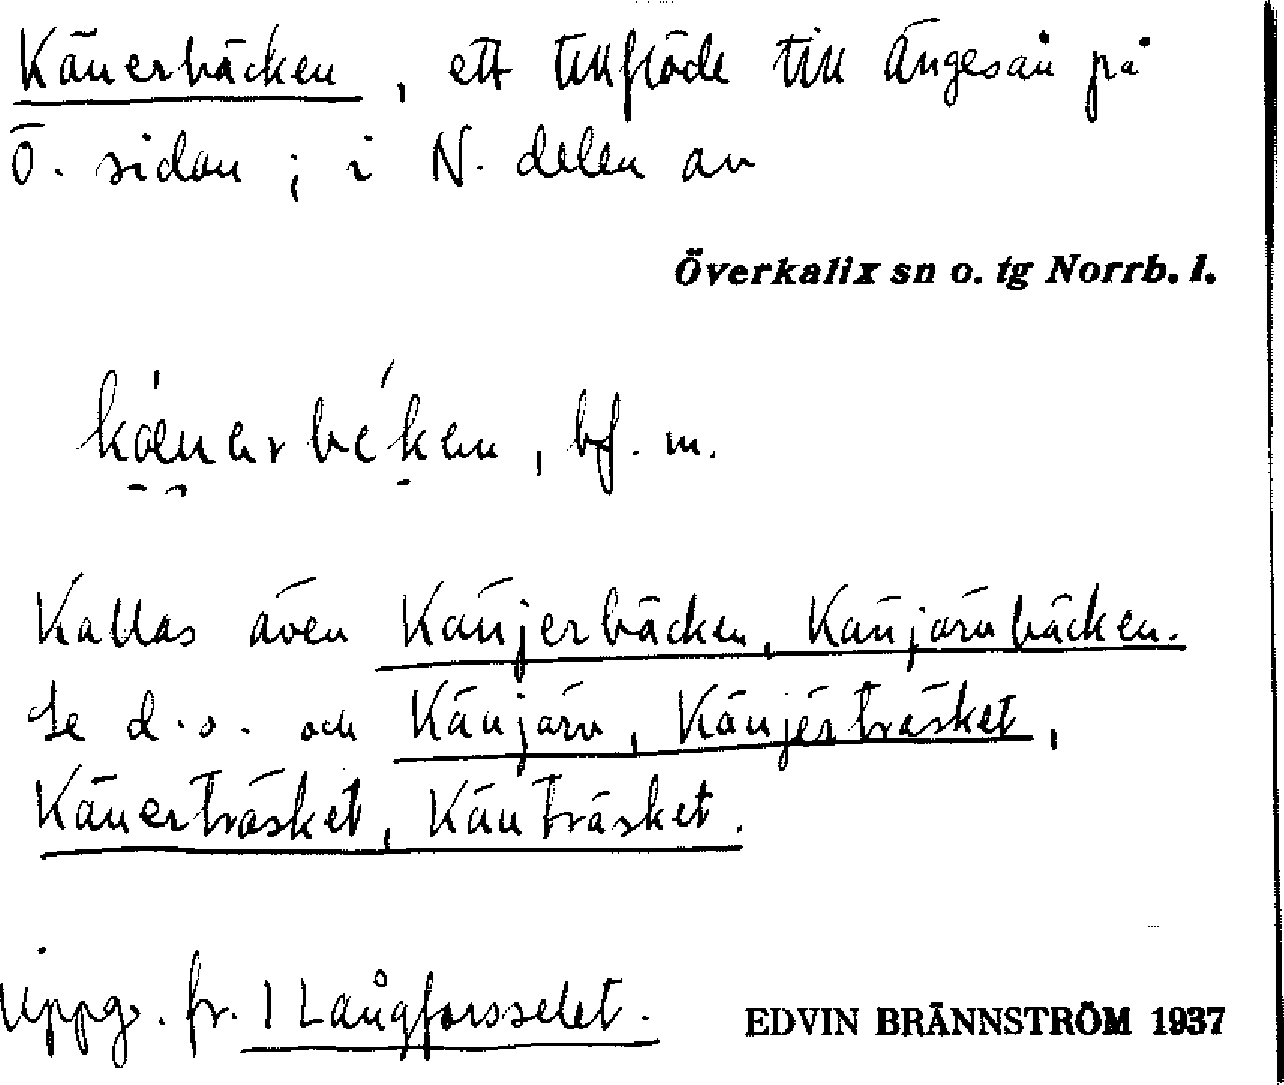 Känerbäcken, ett tillflöde till Ängesån på
Ö. sidan; i N. delen av
Överkalix sn o. tg Norrb. l.
bf. m.
Kallas även Känjerbäcken, Känjärvbäcken.
Se d.o. och Känjärv, Känjerträsket,
Känerträsket, Känträsket.
Uppg. fr. 1 Långforsselet.
EDVIN BRÄNNSTRÖM 1937